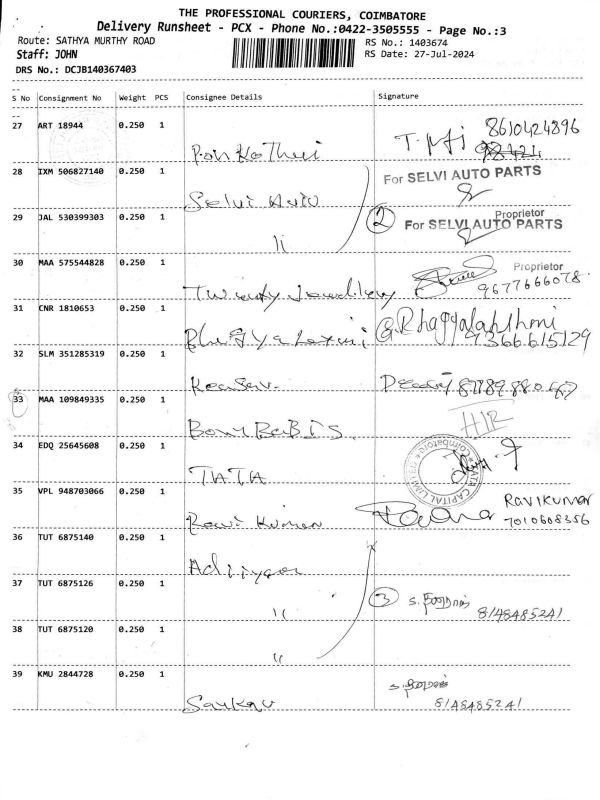 THE PROFESSIONAL COURIERS, COIMBATORE
Delivery Runsheet - PCX - Phone No.:0422-3505555 - Page No.:3
Route: SATHYA MURTHY ROAD
RS No.: 1403674
Staff: JOHN
RS Date: 27-Jul-2024
DRS No.: DCJB140367403
S No Consignment No Weight PCS Consignee Details Signature
27 ART 18944 0.250 1 8610424896
28 IXM 506827140 0.250 1 Selvi Auto For SELVI AUTO PARTS
Proprietor
29 JAL 530399303 0.250 1 〃 2 For SELVI AUTO PARTS
Proprietor
30 MAA 575544828 0.250 1 9677666078
31 CNR 1810653 0.250 1 9366615129
32 SLM 351285319 0.250 1
33 MAA 109849335 0.250 1
34 EDQ 25645608 0.250 1 TATA TATA CAPITAL LIMITED Coimbatore
35 VPL 948703066 0.250 1 Ravi Kumar RaviKumar
7010608356
36 TUT 6875140 0.250 1
37 TUT 6875126 0.250 1 〃 3 8148485241
38 TUT 6875120 0.250 1 〃
39 KMU 2844728 0.250 1 8148485241